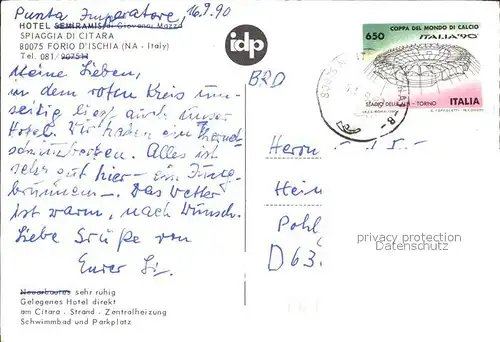 Punta Imperatore, 16.9.90
HOTEL SEMIRAMIS di Giovanni Mazza
SPIAGGIA DI CITARA
80075 FORIO D'ISCHIA (NA - Italy)
Tel. 081/907511
idp
650 COPPA DEL MONDO DI CALCIO
ITALIA'90
STADIO DELLE ALPI - TORINO ITALIA
BRD
Meine Lieben,
in dem roten Kreis um-
seitig liegt auch unser
Hotel. Wir haben ein Thermal-
schwimmbecken. Alles ist
sehr gut hier - ein Jung-
brunnen -. Das Wetter
ist warm, nach Wunsch.
Liebe Grüße von
Eurer
Herrn
Hein
Pohl
D 63
privacy protection
VeryVeryPrivate.com
Neuerbautes sehr ruhig
Gelegenes Hotel direkt
am Citara - Strand - Zentralheizung
Schwimmbad und Parkplatz